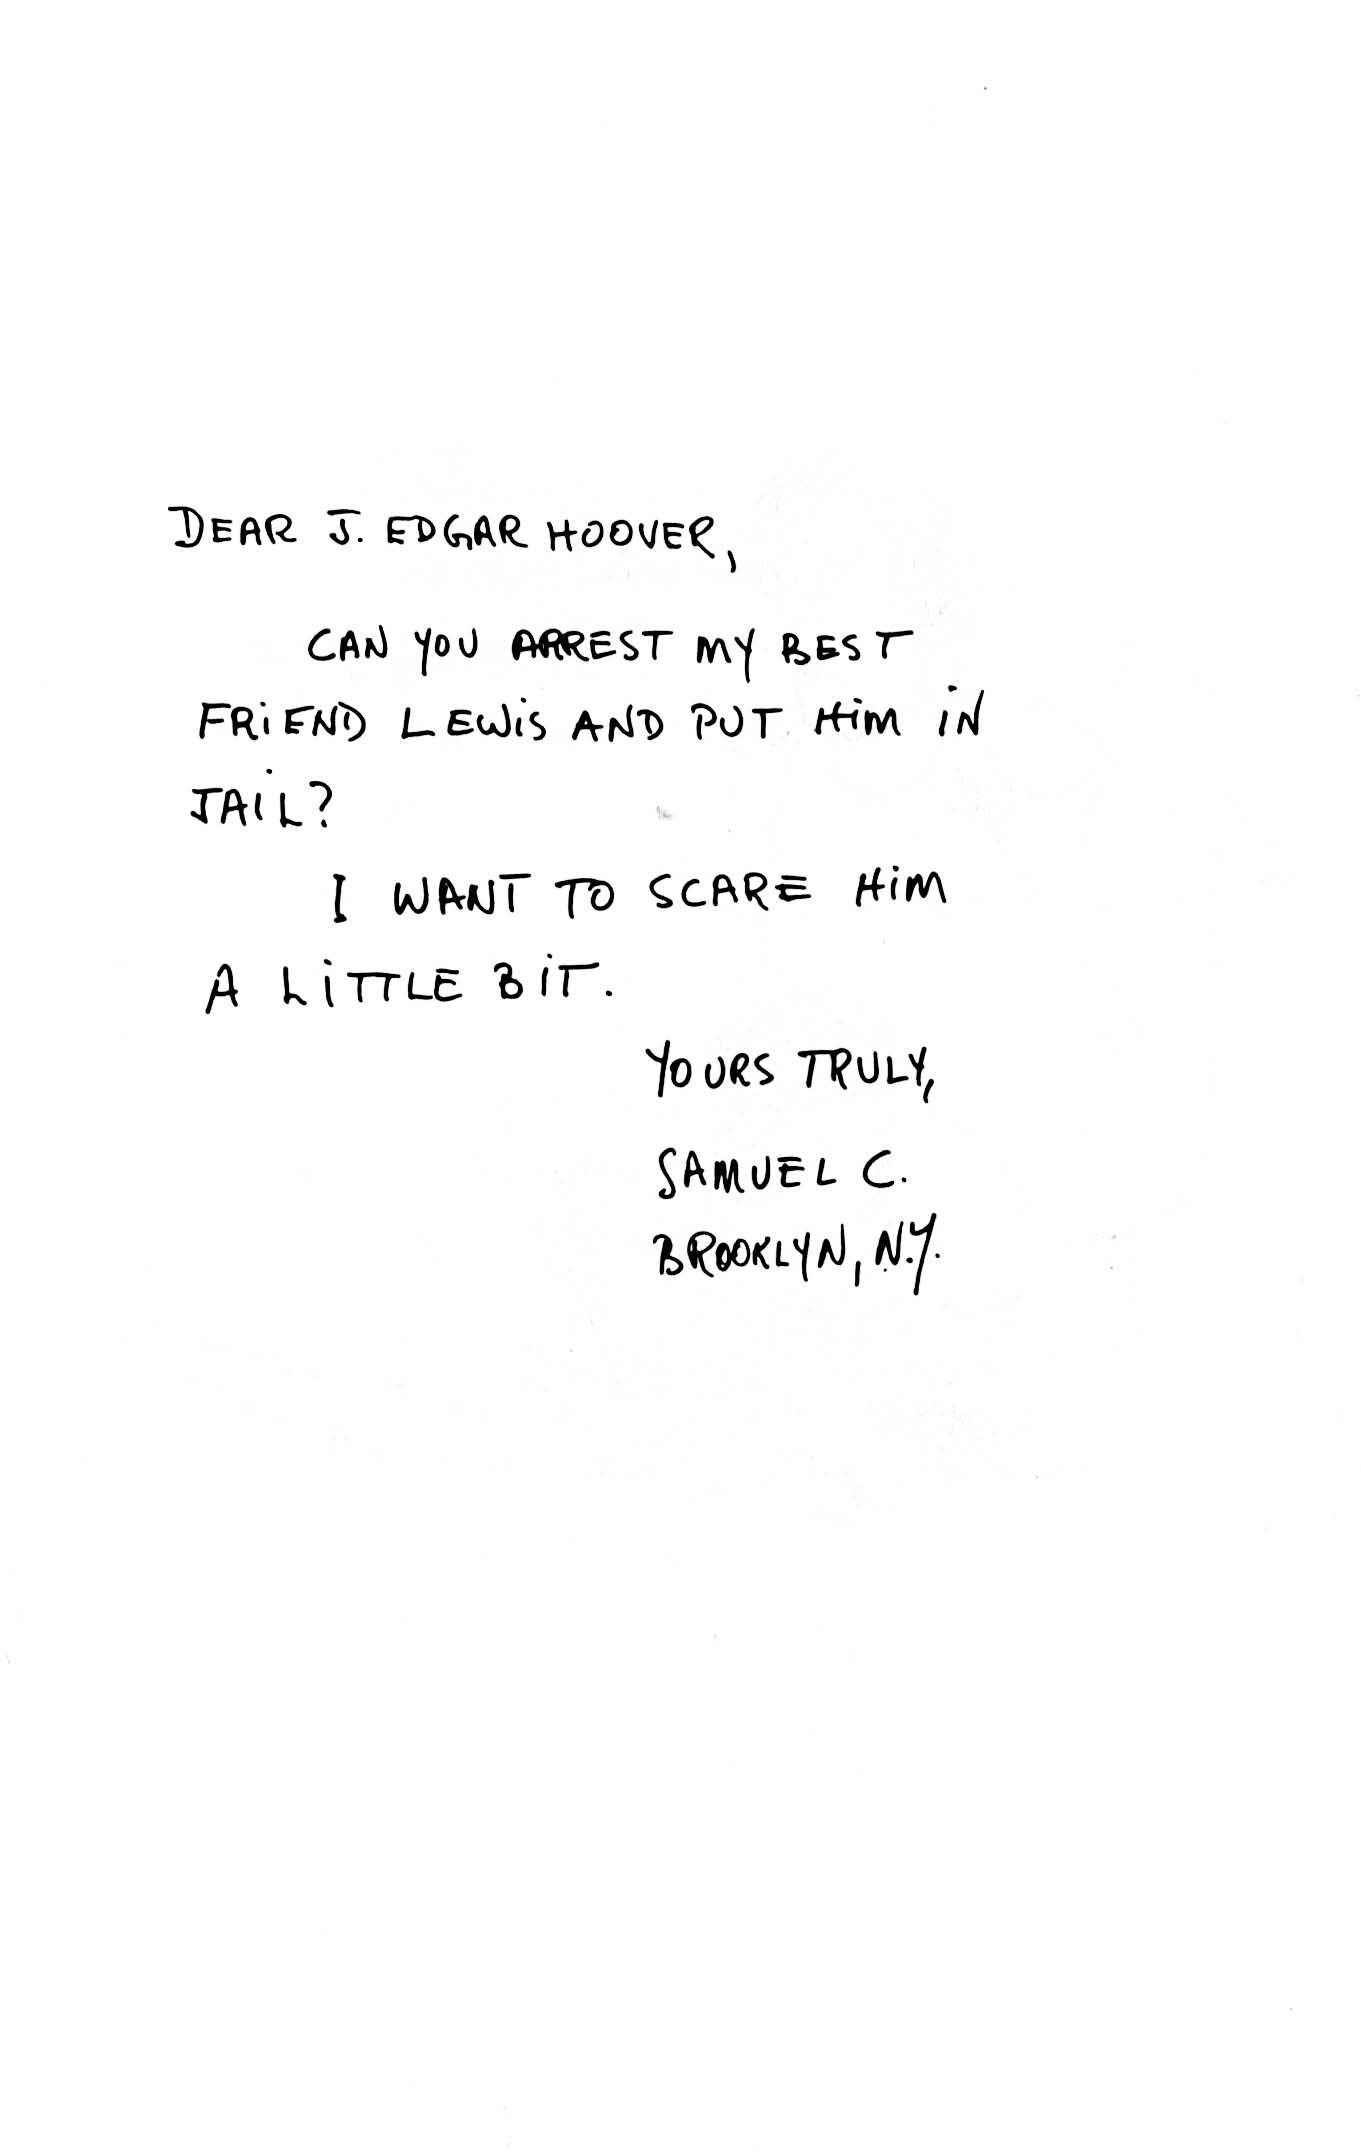 DEAR J. EDGAR HOOVER,
CAN YOU ARREST MY BEST
FRIEND LEWIS AND PUT HIM IN
JAIL?
I WANT TO SCARE HIM
A LITTLE BIT.
YOURS TRULY,
SAMUEL C.
BROOKLYN, N.Y.